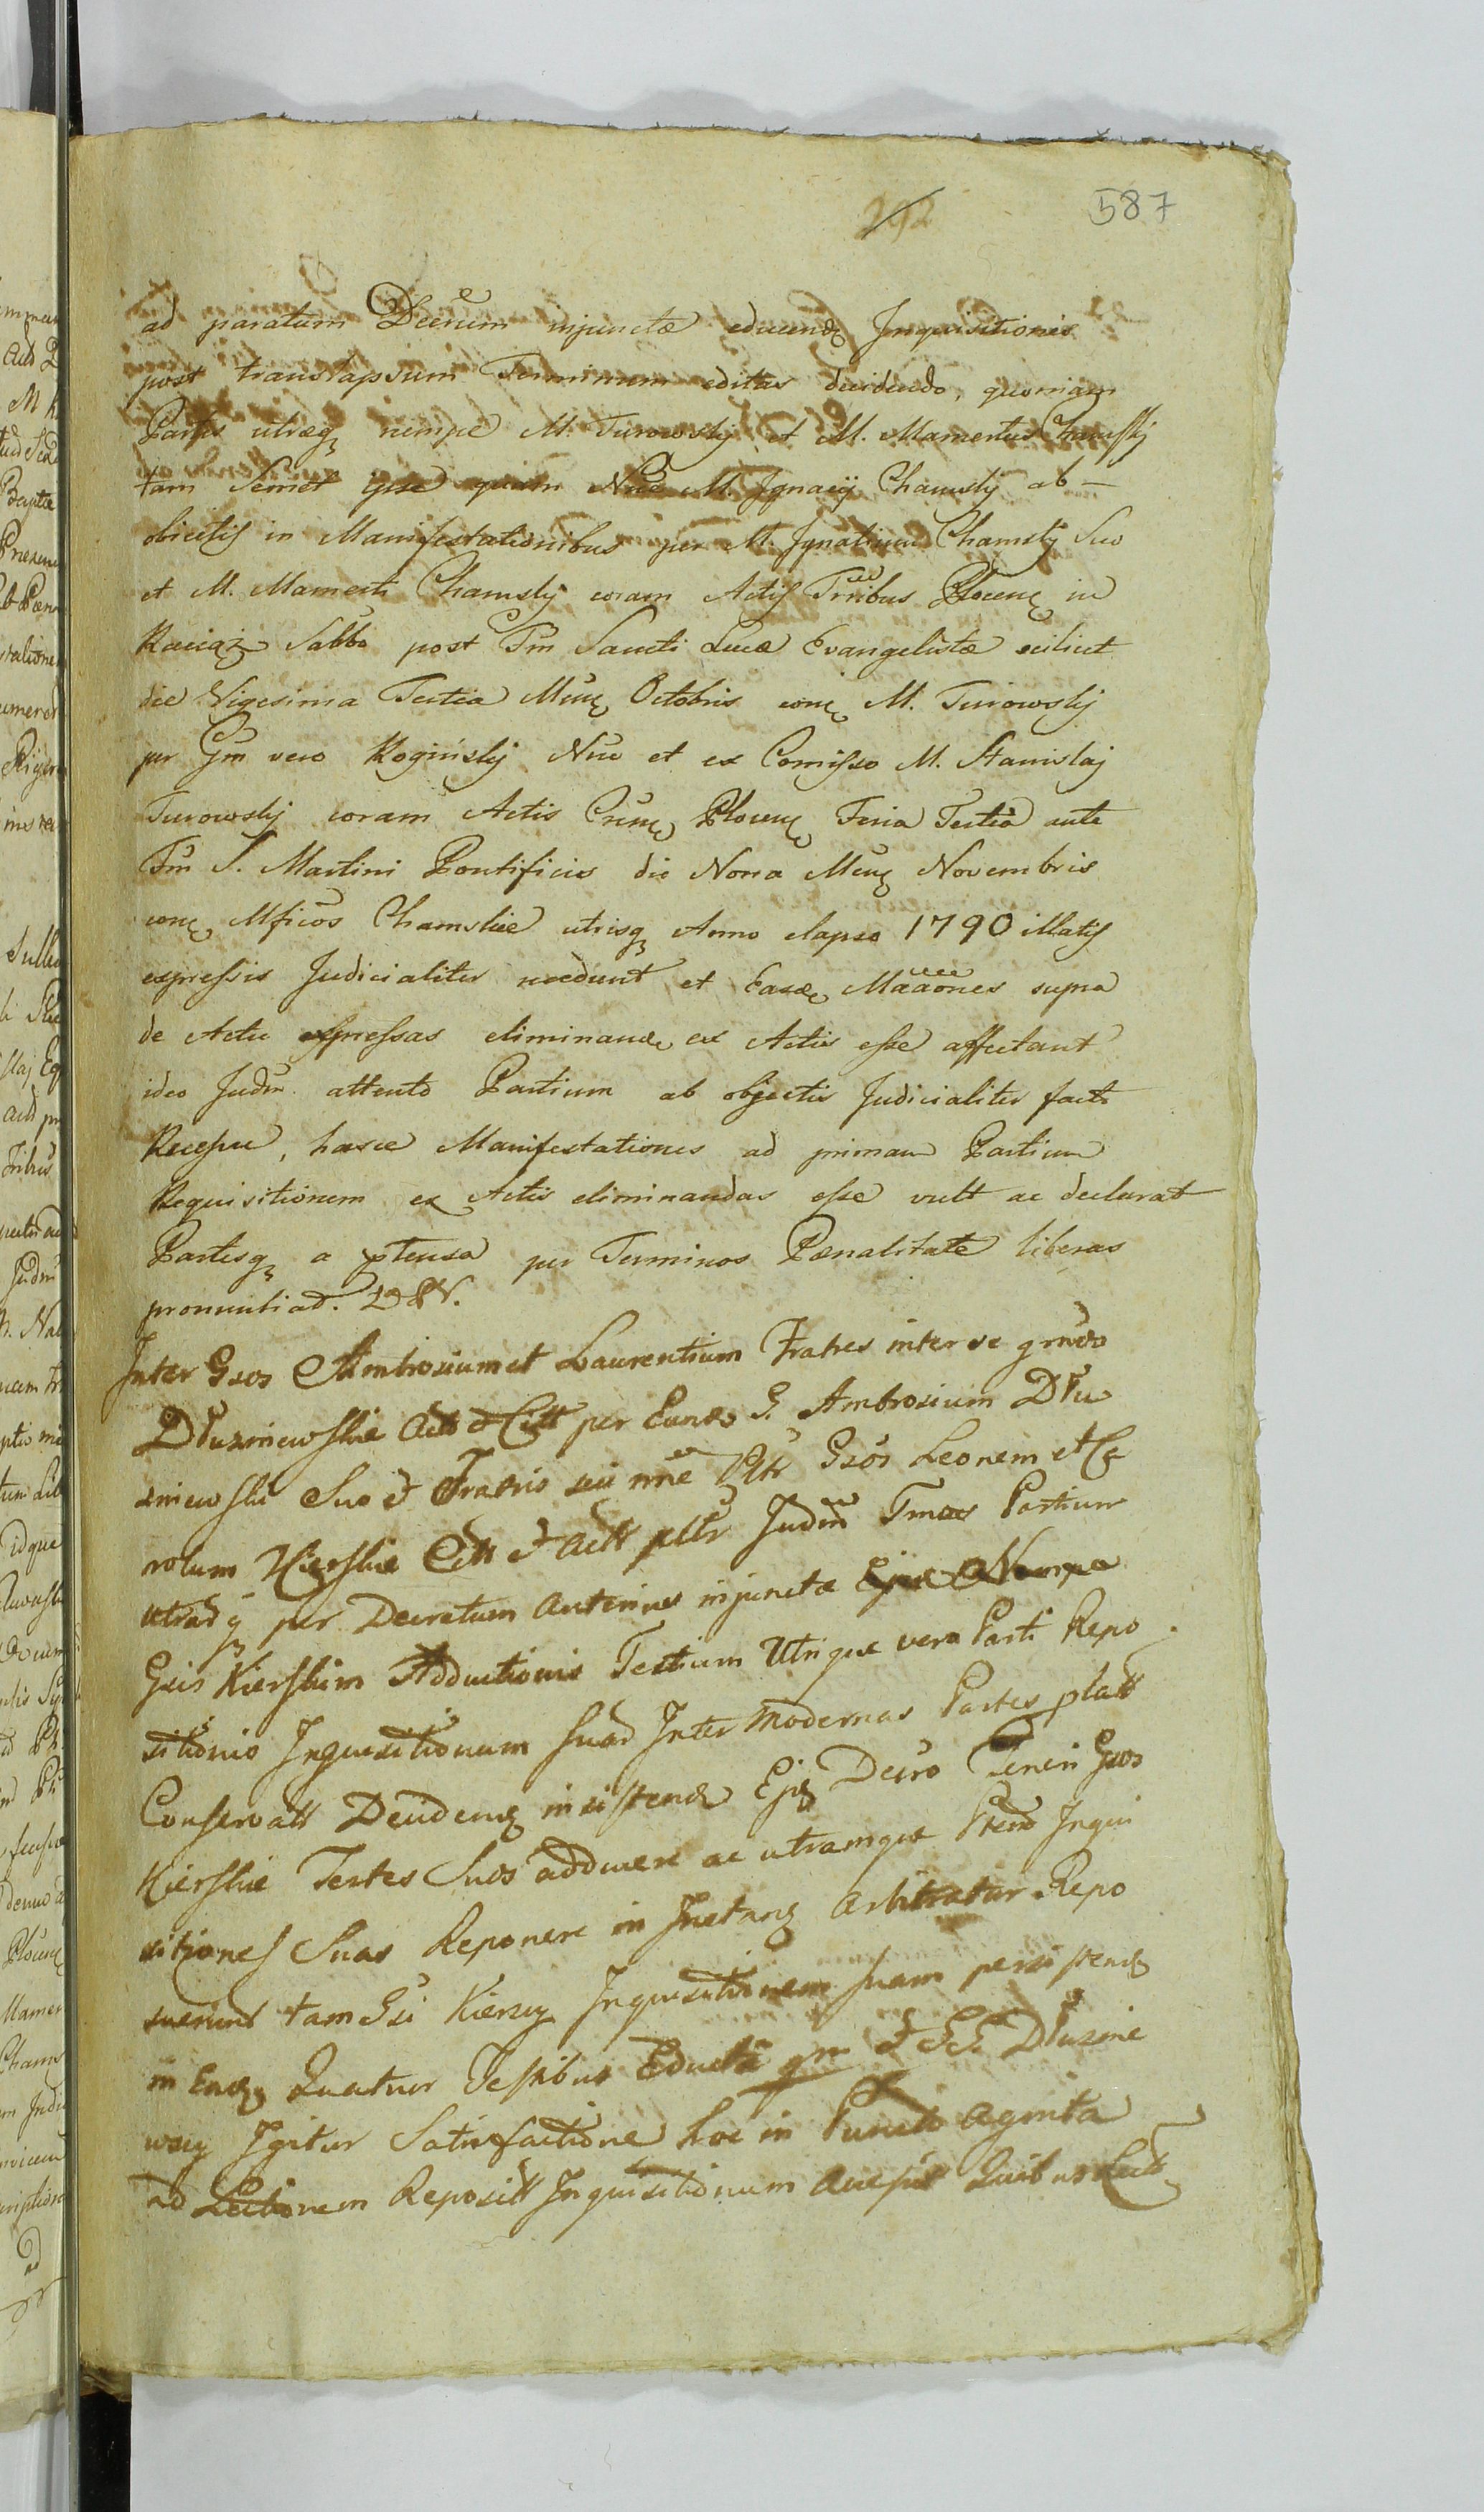 292
587
ad paratum Decrum injunctæ educendę Inquisitionis
post translapsum Terminum editas decidendo, quoniam
Partes utræqꝫ nempe M. Turowskij et M. Mamertus Chamskij
tam Semet ipse quam Nne M. Ignacij Chamskij ab—
objectis in Manifestationibus per M. Ignatium Chamskij Suo
et M. Mamerti Chamskij coram Actis Trribus Plocenꝫ in
Raciąż Sabbo post Fm Sancti Lucæ Evangelistæ scilicet
die Vigesima Tertia Mensꝫ Octobris conꝫ M. Turowskij
per Gm vero Rogińskij Nne et ex Comisso M. Stanislaj
Turowskij coram Actis Plocenꝫ Feria Tertia ante
Fm S. Martini Pontificis die Nona Mensꝫ Novembris
conꝫ Mficos Chamskie utrisqꝫ Anno elapso 1790 illatis
expressis Judicialiter recedunt et Easdꝫ Maaones supra
de Actu expressas eliminandꝫ ex Actis esse affectant
ideo Judm attento Partium ab objectis Judicialiter facto
Recessu, hasce Manifestationes ad primam Partium
Requisitionem ex Actis eliminandas esse vult ac declarat
Partesqꝫ a ptensa per Terminos Pœnalitate liberas
pronuntiat. D
Inter Gsos Ambrosium et Laurentium Fratres inter se grnos
Dłuzniewskie Actt et Citt per Eundꝫ G. Ambrosium Dłu
zniewski Suo et Fratris sui nne Gsos Leonem et Ca
rolum Kierskie Citt et Actt Judm Tmos Partium
utrasqꝫ per Decretum Anterius injunctæ Nempe
Gsis Kierskim Adductionis Testium Utrique vero Parti Repo
sitionis Inquisitionum Suar Inter Modernas Partes platt
Conservatt Decidenꝫ insistendo Ejꝫ Decro Teneri Gsos
Kierskie Testes Suos adducere ac utramque Ptem Inqui
sitiones Suas Reponere in Instanꝫ Arbitratur Repo
suerunt tam Gsi Kierscy Inquisitionem Suam persistendꝫ
in Eadꝫ Quatuor Testibus Eductā qm et GG. Dłuznie
wscy Igitur Satisfactione hoc in Puncto Agnita
ad Lectionem Reposit Inquisitionum Accessit Quibus Lect